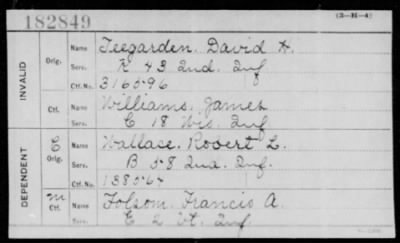 182849
(3-H-4)
INVALID
Orig.
Name Teegarden. David H.
Serv. K 43 Ind. Inf.
Ctf. No. 316596
Ctf.
Name Williams. James
Serv. C 18 Wis. Inf.
DEPENDENT
E
Orig.
Name Wallace. Robert L.
Serv. B 58 Ind. Inf.
Ctf. No. 138564
m
Ctf.
Name Folsom. Francis A.
Serv. E 2 Vt. Inf.